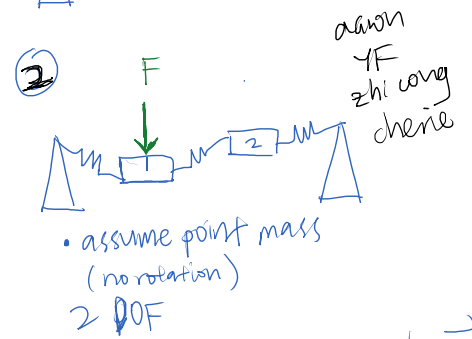 2
F
1
2
aaron
YF
zhi cong
cherie
• assume point mass
(no rotation)
2 DOF